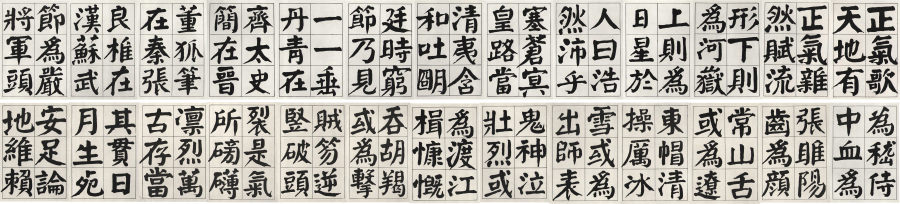 正氣歌
天地有
正氣雜
然賦流
形下則
為河嶽
上則為
日星於
人曰浩
然沛乎
塞蒼冥
皇路當
清夷含
和吐明
廷時窮
節乃見
一一垂
丹青在
齊太史
簡在晉
董狐筆
在秦張
良椎在
漢蘇武
節為嚴
將軍頭
為嵇侍
中血為
張睢陽
齒為顏
常山舌
或為遼
東帽清
操厲冰
雪或為
出師表
鬼神泣
壯烈或
為渡江
楫慷慨
吞胡羯
或為擊
賊笏逆
豎破頭
裂是氣
所磅礴
凛烈萬
古存當
其貫日
月生死
安足論
地維賴